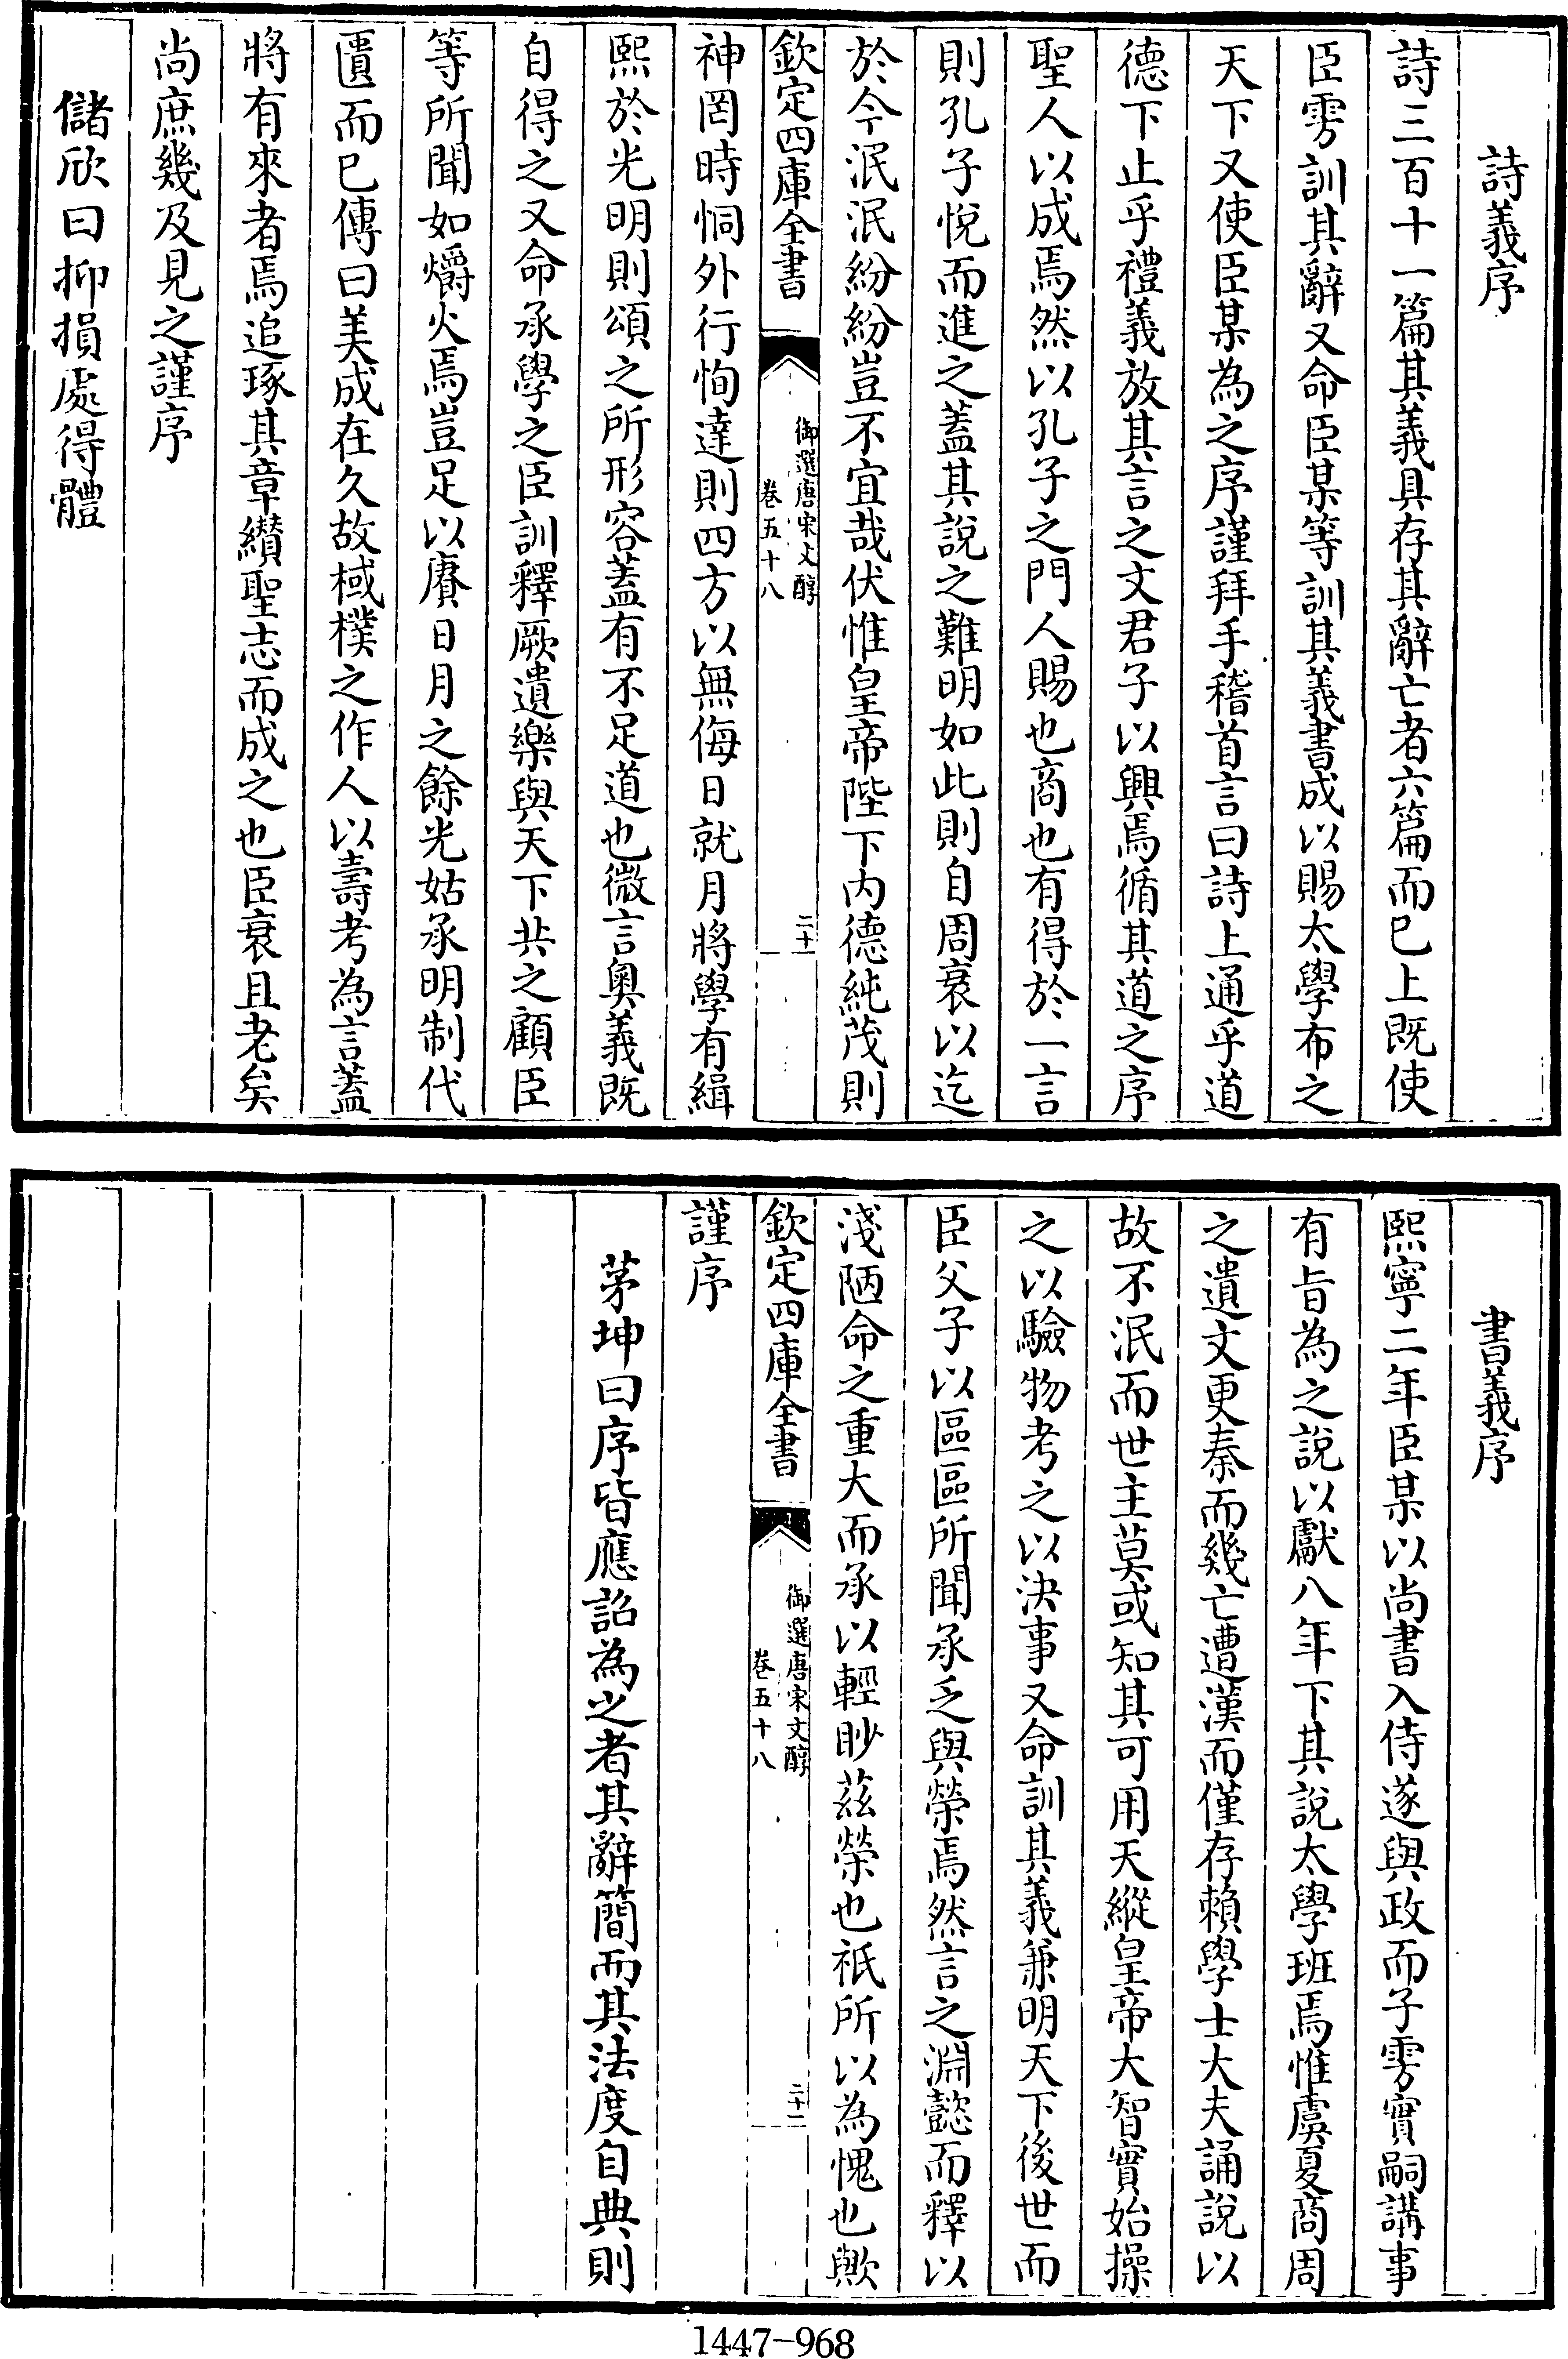 詩義序
詩三百十一篇其義具存其辭亡者六篇而已上既使
臣雱訓其辭又命臣某等訓其義書成以賜太學布之
天下又使臣某為之序謹拜手稽首言曰詩上通乎道
德下止乎禮義放其言之文君子以興焉循其道之序
聖人以成焉然以孔子之門人賜也商也有得於一言
則孔子悅而進之蓋其說之難明如此則自周衰以迄
於今泯泯紛紛豈不宜哉伏惟皇帝陛下内德純茂則
欽定四庫全書
御選唐宋文醇
卷五十八
二十一
神罔時恫外行恂達則四方以無侮日就月將學有緝
熙於光明則頌之所形容蓋有不足道也微言奧義既
自得之又命承學之臣訓釋厥遺樂與天下共之顧臣
等所聞如爝火焉豈足以賡日月之餘光姑承明制代
匱而已傳曰美成在久故棫樸之作人以壽考為言蓋
將有來者焉追琢其章纘聖志而成之也臣衰且老矣
尚庶幾及見之謹序
儲欣曰抑損處得體
書義序
熙寧二年臣某以尚書入侍遂與政而子雱實嗣講事
有旨為之說以獻八年下其說太學班焉惟虞夏商周
之遺文更秦而幾亡遭漢而僅存賴學士大夫誦說以
故不泯而世主莫或知其可用天縱皇帝大智實始操
之以驗物考之以決事又命訓其義兼明天下後世而
臣父子以區區所聞承乏與榮焉然言之淵懿而釋以
淺陋命之重大而承以輕眇茲榮也祇所以為愧也歟
欽定四庫全書
御選唐宋文醇
卷五十八
二十二
謹序
茅坤曰序皆應詔為之者其辭簡而其法度自典則
1447-968